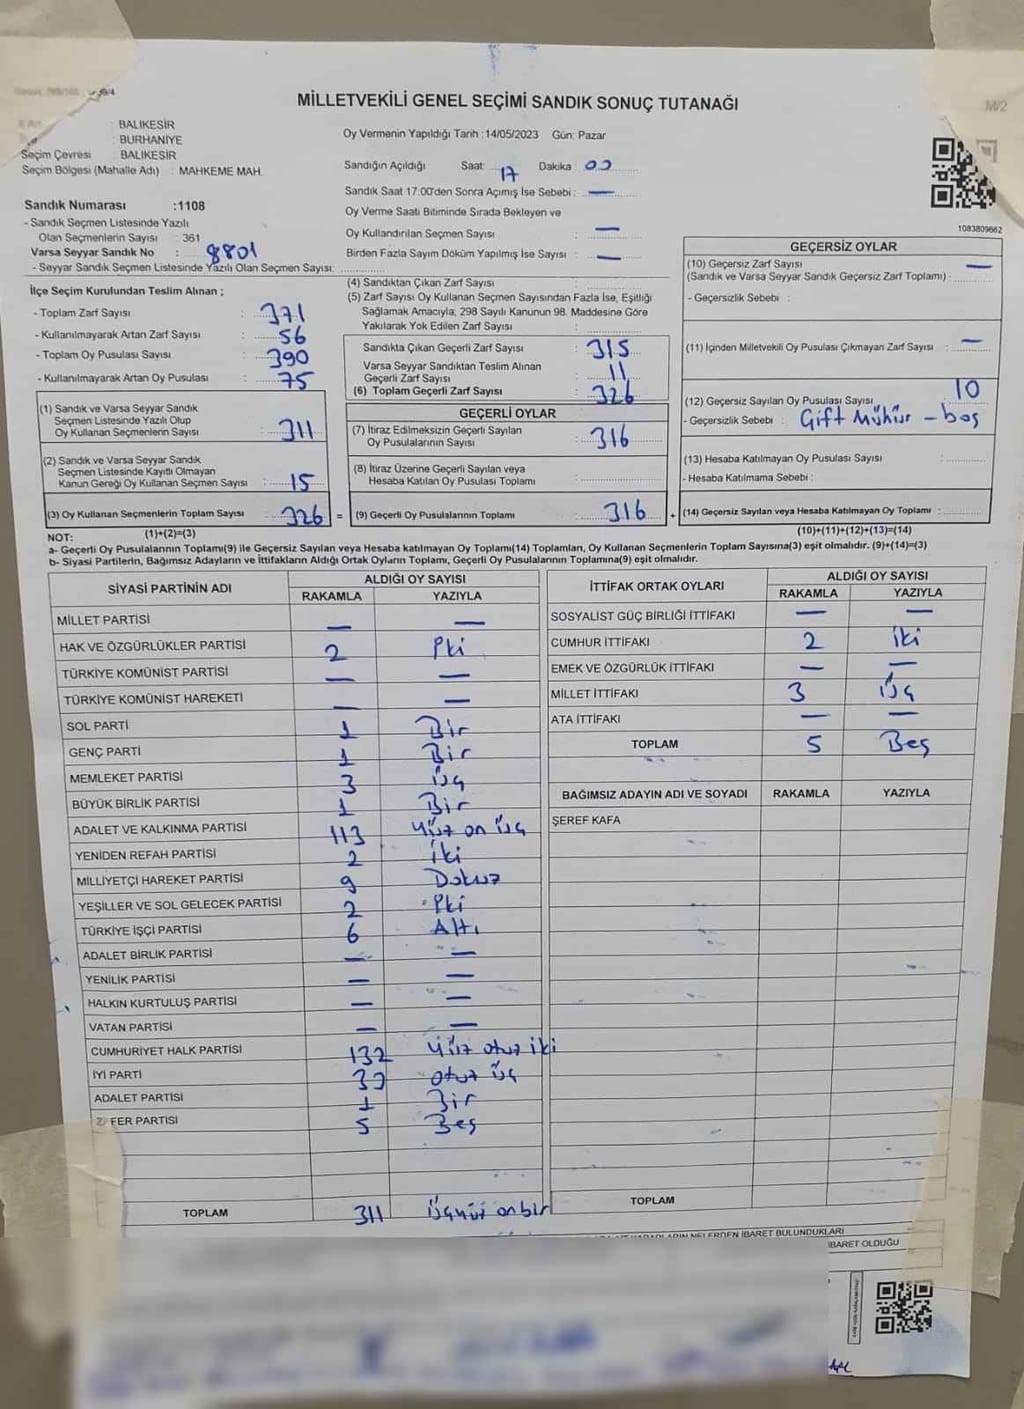 MİLLETVEKİLİ GENEL SEÇİMİ SANDIK SONUÇ TUTANAĞI
M/2
: BALIKESİR
: BURHANİYE
Seçim Çevresi : BALIKESİR
Seçim Bölgesi (Mahalle Adı) : MAHKEME MAH.
Sandık Numarası :1108
- Sandık Seçmen Listesinde Yazılı
Olan Seçmenlerin Sayısı : 361
Varsa Seyyar Sandık No : 8801
- Seyyar Sandık Seçmen Listesinde Yazılı Olan Seçmen Sayısı:
Oy Vermenin Yapıldığı Tarih :14/05/2023 Gün: Pazar
Sandığın Açıldığı Saat: 17 Dakika : 00
Sandık Saat 17:00'den Sonra Açımış İse Sebebi : —
Oy Verme Saati Bitiminde Sırada Bekleyen ve
Oy Kullandırılan Seçmen Sayısı : —
Birden Fazla Sayım Döküm Yapılmış İse Sayısı : —
1083809662
İlçe Seçim Kurulundan Teslim Alınan ;
- Toplam Zarf Sayısı : 371
- Kullanılmayarak Artan Zarf Sayısı : 56
- Toplam Oy Pusulası Sayısı : 390
- Kullanılmayarak Artan Oy Pusulası : 75
(1) Sandık ve Varsa Seyyar Sandık
Seçmen Listesinde Yazılı Olup
Oy Kullanan Seçmenlerin Sayısı : 311
(2) Sandık ve Varsa Seyyar Sandık
Seçmen Listesinde Kayıtlı Olmayan
Kanun Gereği Oy Kullanan Seçmen Sayısı : 15
(3) Oy Kullanan Seçmenlerin Toplam Sayısı : 326
(1)+(2)=(3)
(4) Sandıktan Çıkan Zarf Sayısı :
(5) Zarf Sayısı Oy Kullanan Seçmen Sayısından Fazla İse, Eşitliği
Sağlamak Amacıyla, 298 Sayılı Kanunun 98. Maddesine Göre
Yakılarak Yok Edilen Zarf Sayısı :
Sandıkta Çıkan Geçerli Zarf Sayısı : 315
Varsa Seyyar Sandıktan Teslim Alınan
Geçerli Zarf Sayısı : 11
(6) Toplam Geçerli Zarf Sayısı : 326
GEÇERLİ OYLAR
(7) İtiraz Edilmeksizin Geçerli Sayılan
Oy Pusulalarının Sayısı : 316
(8) İtiraz Üzerine Geçerli Sayılan veya
Hesaba Katılan Oy Pusulası Toplamı :
= (9) Geçerli Oy Pusulalarının Toplamı : 316 +
GEÇERSİZ OYLAR
(10) Geçersiz Zarf Sayısı —
(Sandık ve Varsa Seyyar Sandık Geçersiz Zarf Toplamı) -
- Geçersizlik Sebebi :
(11) İçinden Milletvekili Oy Pusulası Çıkmayan Zarf Sayısı : —
(12) Geçersiz Sayılan Oy Pusulası Sayısı : 10
- Geçersizlik Sebebi : Çift Mühür - boş
(13) Hesaba Katılmayan Oy Pusulası Sayısı :
- Hesaba Katılmama Sebebi :
(14) Geçersiz Sayılan veya Hesaba Katılmayan Oy Toplamı :
(10)+(11)+(12)+(13)=(14)
NOT:
a- Geçerli Oy Pusulalarının Toplamı(9) ile Geçersiz Sayılan veya Hesaba katılmayan Oy Toplamı(14) Toplamları, Oy Kullanan Seçmenlerin Toplam Sayısına(3) eşit olmalıdır. (9)+(14)=(3)
b- Siyasi Partilerin, Bağımsız Adayların ve İttifakların Aldığı Ortak Oyların Toplamı, Geçerli Oy Pusulalarının Toplamına(9) eşit olmalıdır.
SİYASİ PARTİNİN ADI ALDIĞI OY SAYISI
RAKAMLA YAZIYLA
MİLLET PARTİSİ — —
HAK VE ÖZGÜRLÜKLER PARTİSİ 2 İki
TÜRKİYE KOMÜNİST PARTİSİ — —
TÜRKİYE KOMÜNİST HAREKETİ — —
SOL PARTİ 1 Bir
GENÇ PARTİ 1 Bir
MEMLEKET PARTİSİ 3 Üç
BÜYÜK BİRLİK PARTİSİ 1 Bir
ADALET VE KALKINMA PARTİSİ 113 Yüz on üç
YENİDEN REFAH PARTİSİ 2 İki
MİLLİYETÇİ HAREKET PARTİSİ 9 Dokuz
YEŞİLLER VE SOL GELECEK PARTİSİ 2 İki
TÜRKİYE İŞÇİ PARTİSİ 6 Altı
ADALET BİRLİK PARTİSİ — —
YENİLİK PARTİSİ — —
HALKIN KURTULUŞ PARTİSİ — —
VATAN PARTİSİ — —
CUMHURİYET HALK PARTİSİ 132 Yüz otuz iki
İYİ PARTİ 33 otuz üç
ADALET PARTİSİ 1 Bir
ZAFER PARTİSİ 5 Beş
TOPLAM 311 Üçyüz onbir
İTTİFAK ORTAK OYLARI ALDIĞI OY SAYISI
RAKAMLA YAZIYLA
SOSYALİST GÜÇ BİRLİĞİ İTTİFAKI — —
CUMHUR İTTİFAKI 2 İki
EMEK VE ÖZGÜRLÜK İTTİFAKI — —
MİLLET İTTİFAKI 3 Üç
ATA İTTİFAKI — —
TOPLAM 5 Beş
BAĞIMSIZ ADAYIN ADI VE SOYADI RAKAMLA YAZIYLA
ŞEREF KAFA
TOPLAM
NELERDEN İBARET BULUNDUKLARI
İBARET OLDUĞU